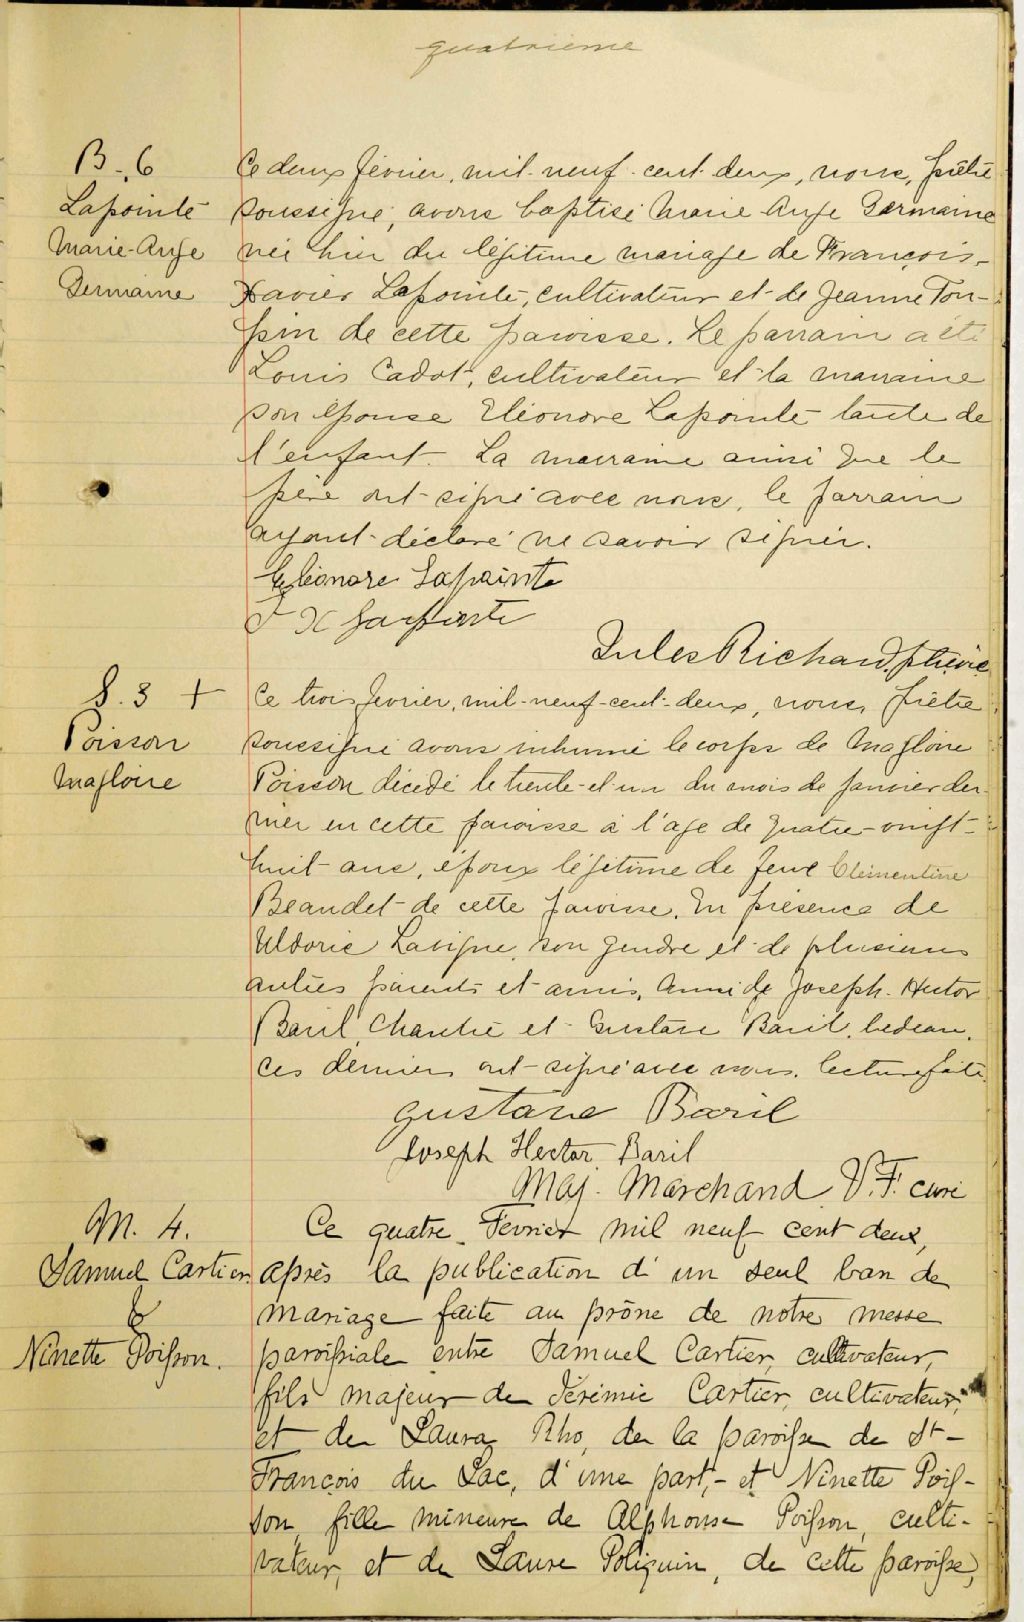 quatrième
B. 6
Lapointe
Marie-Ange
Germaine
Ce deux février, mil-neuf-cent-deux, nous, prêtre
soussigné, avons baptisé Marie Ange Germaine
née hier du légitime mariage de François-
Xavier Lapointe, cultivateur et de Jeanne Tou-
pin de cette paroisse. Le parrain a été
Louis Cadot, cultivateur et la marraine
son épouse Eléonore Lapointe tante de
l'enfant. La marraine ainsi que le
père ont signé avec nous, le parrain
ayant déclaré ne savoir signer.
Eléonore Lapointe
F X Lapointe
Jules Richard, ptre vic
S. 3 +
Poisson
Magloire
Ce trois février, mil-neuf-cent-deux, nous, prêtre
soussigné avons inhumé le corps de Magloire
Poisson décédé le trente-et-un du mois de janvier der-
nier en cette paroisse à l'age de quatre-vingt-
huit ans, époux légitime de feue Clémentine
Beaudet de cette paroisse. En présence de
Uldoric Lavigne, son gendre et de plusieurs
autres parents et amis, aussi de Joseph-Hector
Baril, Chantre et Gustave Baril, bedeau.
Ces derniers ont signé avec nous. lecture faite.
Gustave Baril
Joseph Hector Baril
Maj. Marchand V.F. curé
M. 4.
Samuel Cartier
&
Ninette Poisson.
Ce quatre Février mil neuf cent deux,
après la publication d'un seul ban de
mariage faite au prône de notre messe
paroissiale entre Samuel Cartier, cultivateur,
fils majeur de Jérémie Cartier, cultivateur,
et de Laura Rho, de la paroisse de St-
François du Lac, d'une part,- et Ninette Pois-
son, fille mineure de Alphonse Poisson, culti-
vateur, et de Laure Poliquin, de cette paroisse,